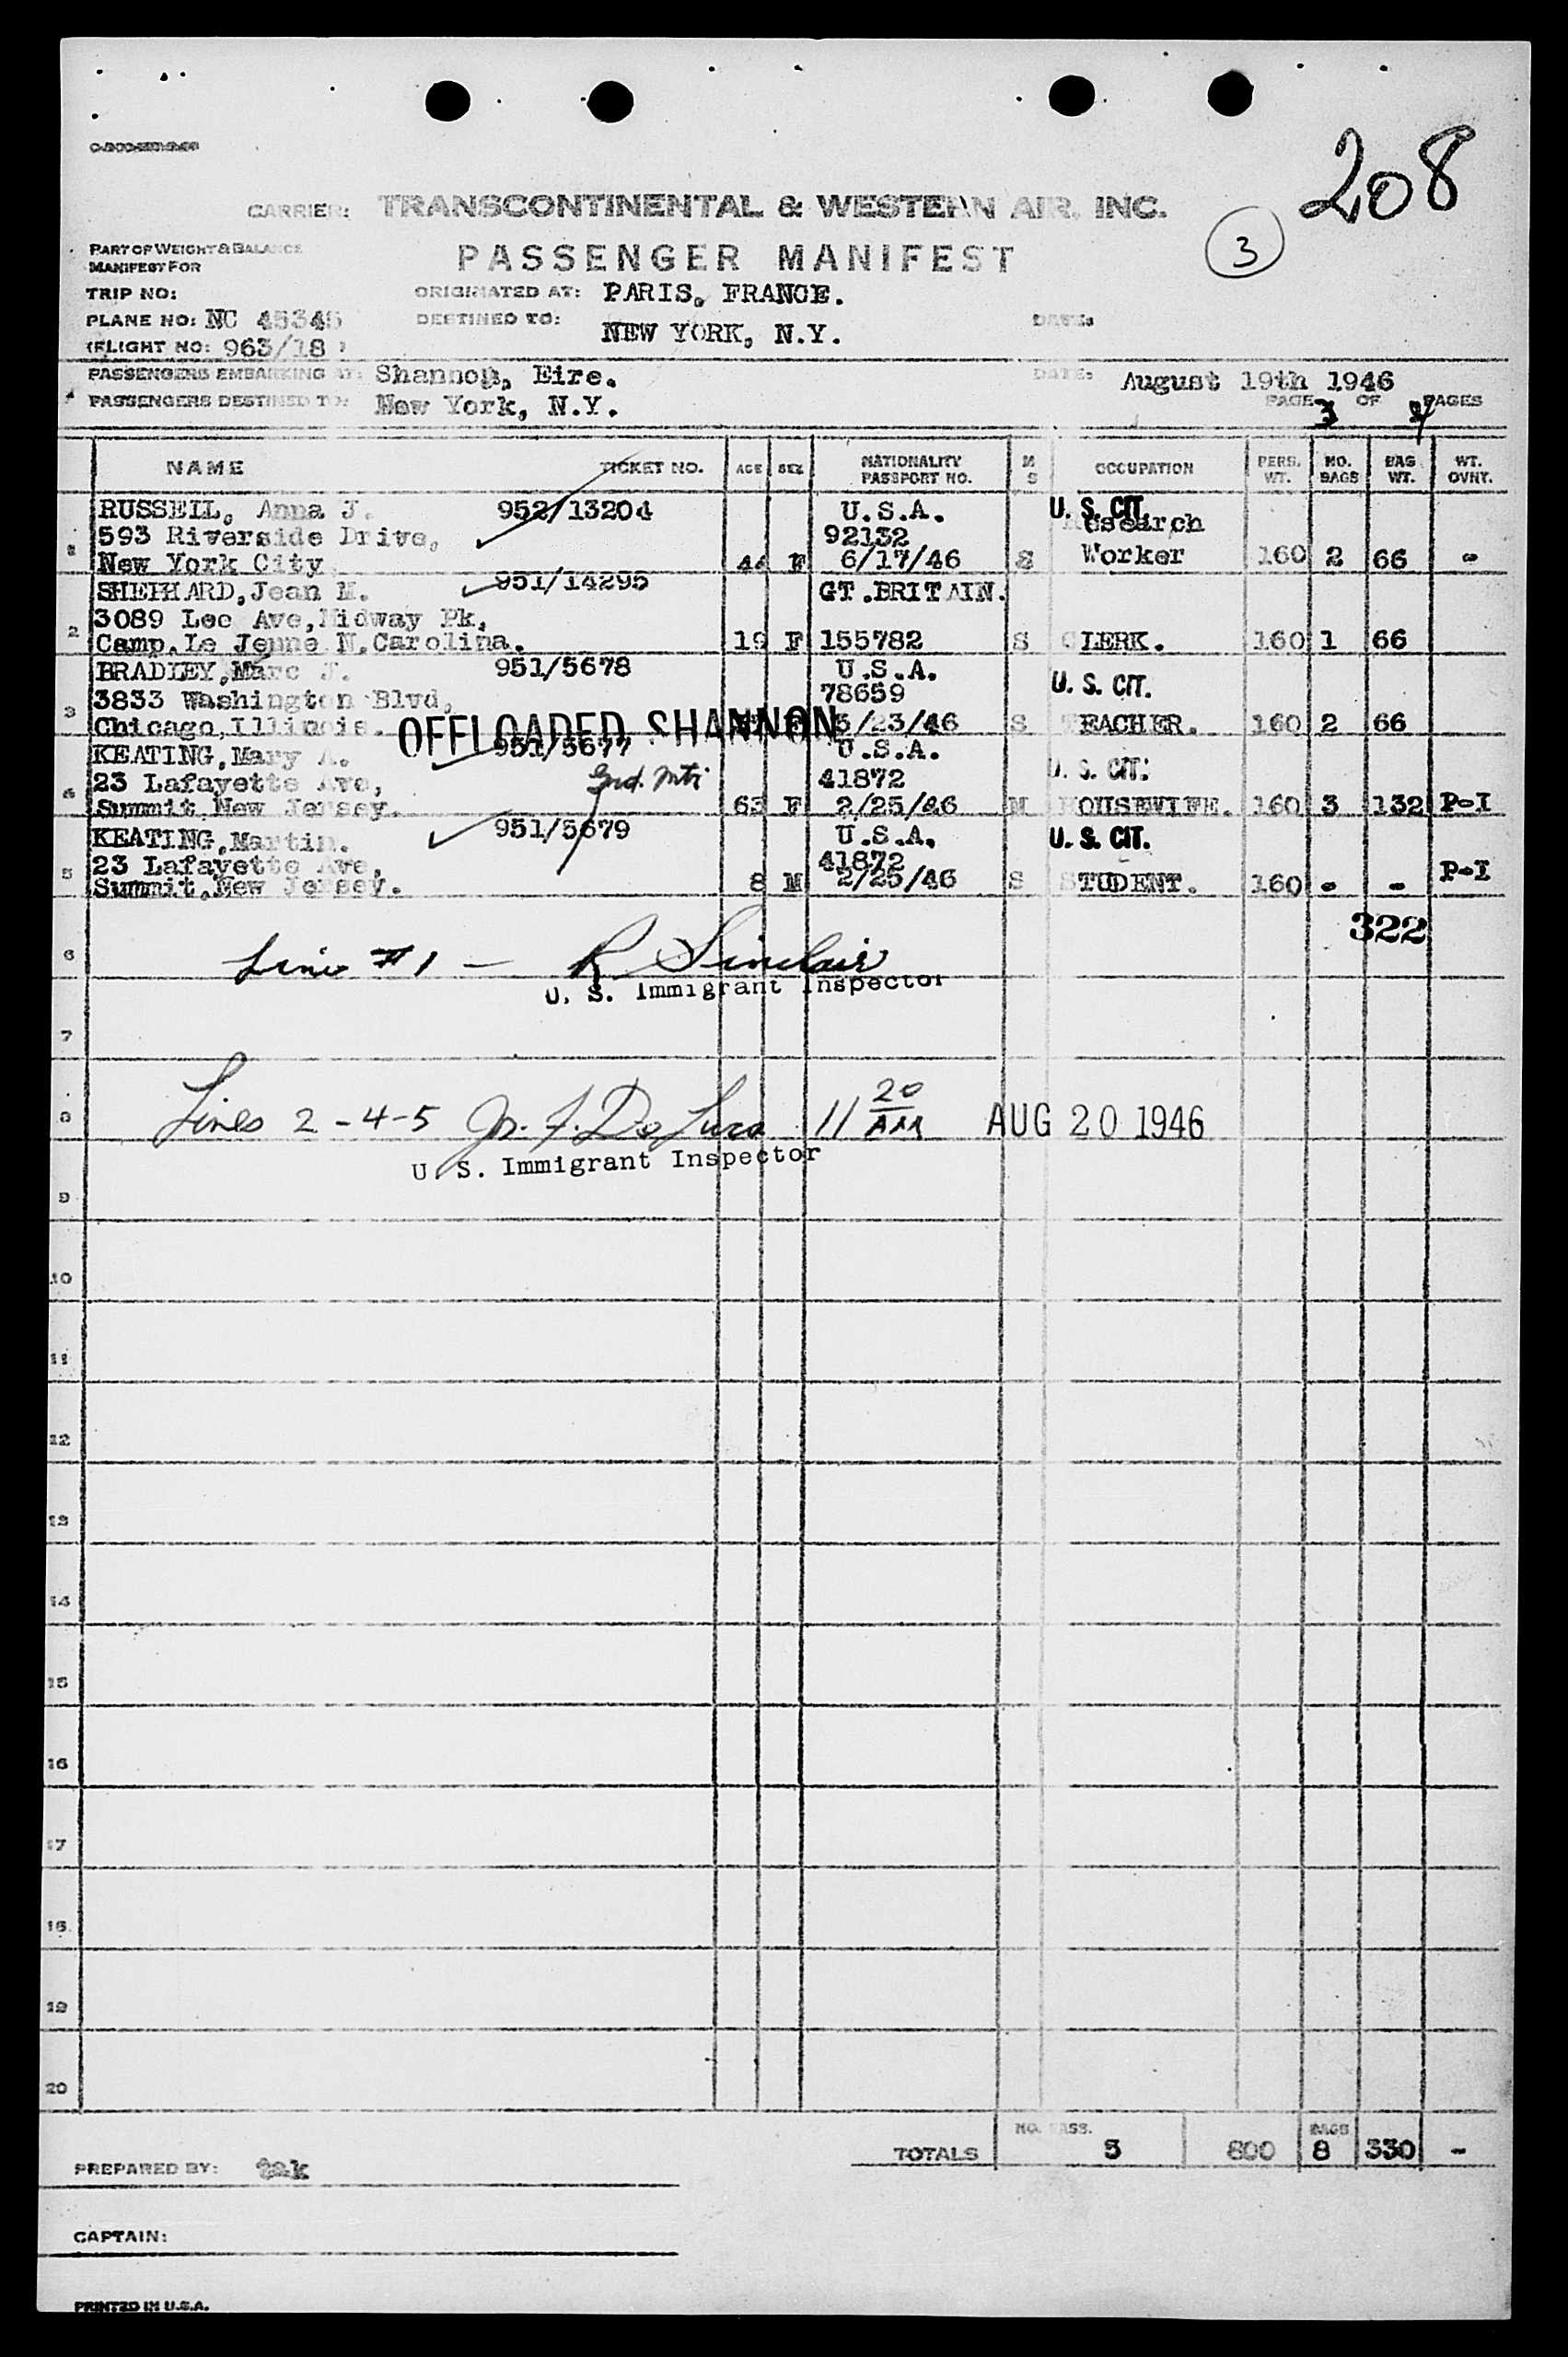 208
CARRIER: TRANSCONTINENTAL & WESTERN AIR, INC.
3
PART OF WEIGHT & BALANCE
MANIFEST FOR
PASSENGER MANIFEST
TRIP NO:
ORIGINATED AT: PARIS, FRANCE.
PLANE NO: NC 45345
DESTINED TO: NEW YORK, N.Y.
DATE:
(FLIGHT NO: 963/18 )
PASSENGERS EMBARKING AT: Shannon, Eire.
DATE: August 19th 1946
PASSENGERS DESTINED TO: New York, N.Y.
PAGE 3 OF PAGES
NAME TICKET NO. AGE SEX NATIONALITY PASSPORT NO. M S OCCUPATION PERS. WT. NO. BAGS BAG WT. WT. OVNT.
RUSSELL, Anna J. 952/13204 U.S.A. U. S. CIT.
593 Riverside Drive, 92132 Research
1 New York City 44 F 6/17/46 S Worker 160 2 66 -
SHEPHARD, Jean M. 951/14295 GT.BRITAIN.
3089 Lee Ave, Midway Pk,
2 Camp. Le Jeune N. Carolina. 19 F 155782 S CLERK. 160 1 66
BRADLEY, Marc J. 951/5678 U.S.A.
3833 Washington Blvd, 78659 U. S. CIT.
3 Chicago, Illinois. F 5/23/46 S TEACHER. 160 2 66
OFFLOADED SHANNON
KEATING, Mary A. 951/5677 U.S.A.
23 Lafayette Ave, 41872 U. S. CIT.
4 Summit, New Jersey. 63 F 2/25/46 M HOUSEWIFE. 160 3 132 P-I
KEATING, Martin. 951/5679 U.S.A. U. S. CIT.
23 Lafayette Ave, 41872
5 Summit, New Jersey. 8 M 2/25/46 S STUDENT. 160 - - P-I
322
6 Line #1 - R Sinclair
U. S. Immigrant Inspector
7
8 Lines 2-4-5 11 20 AM AUG 20 1946
U. S. Immigrant Inspector
9
10
11
12
13
14
15
16
17
18
19
20
TOTALS NO. PASS. 5 800 BAGS 8 330 -
PREPARED BY:
CAPTAIN:
PRINTED IN U.S.A.